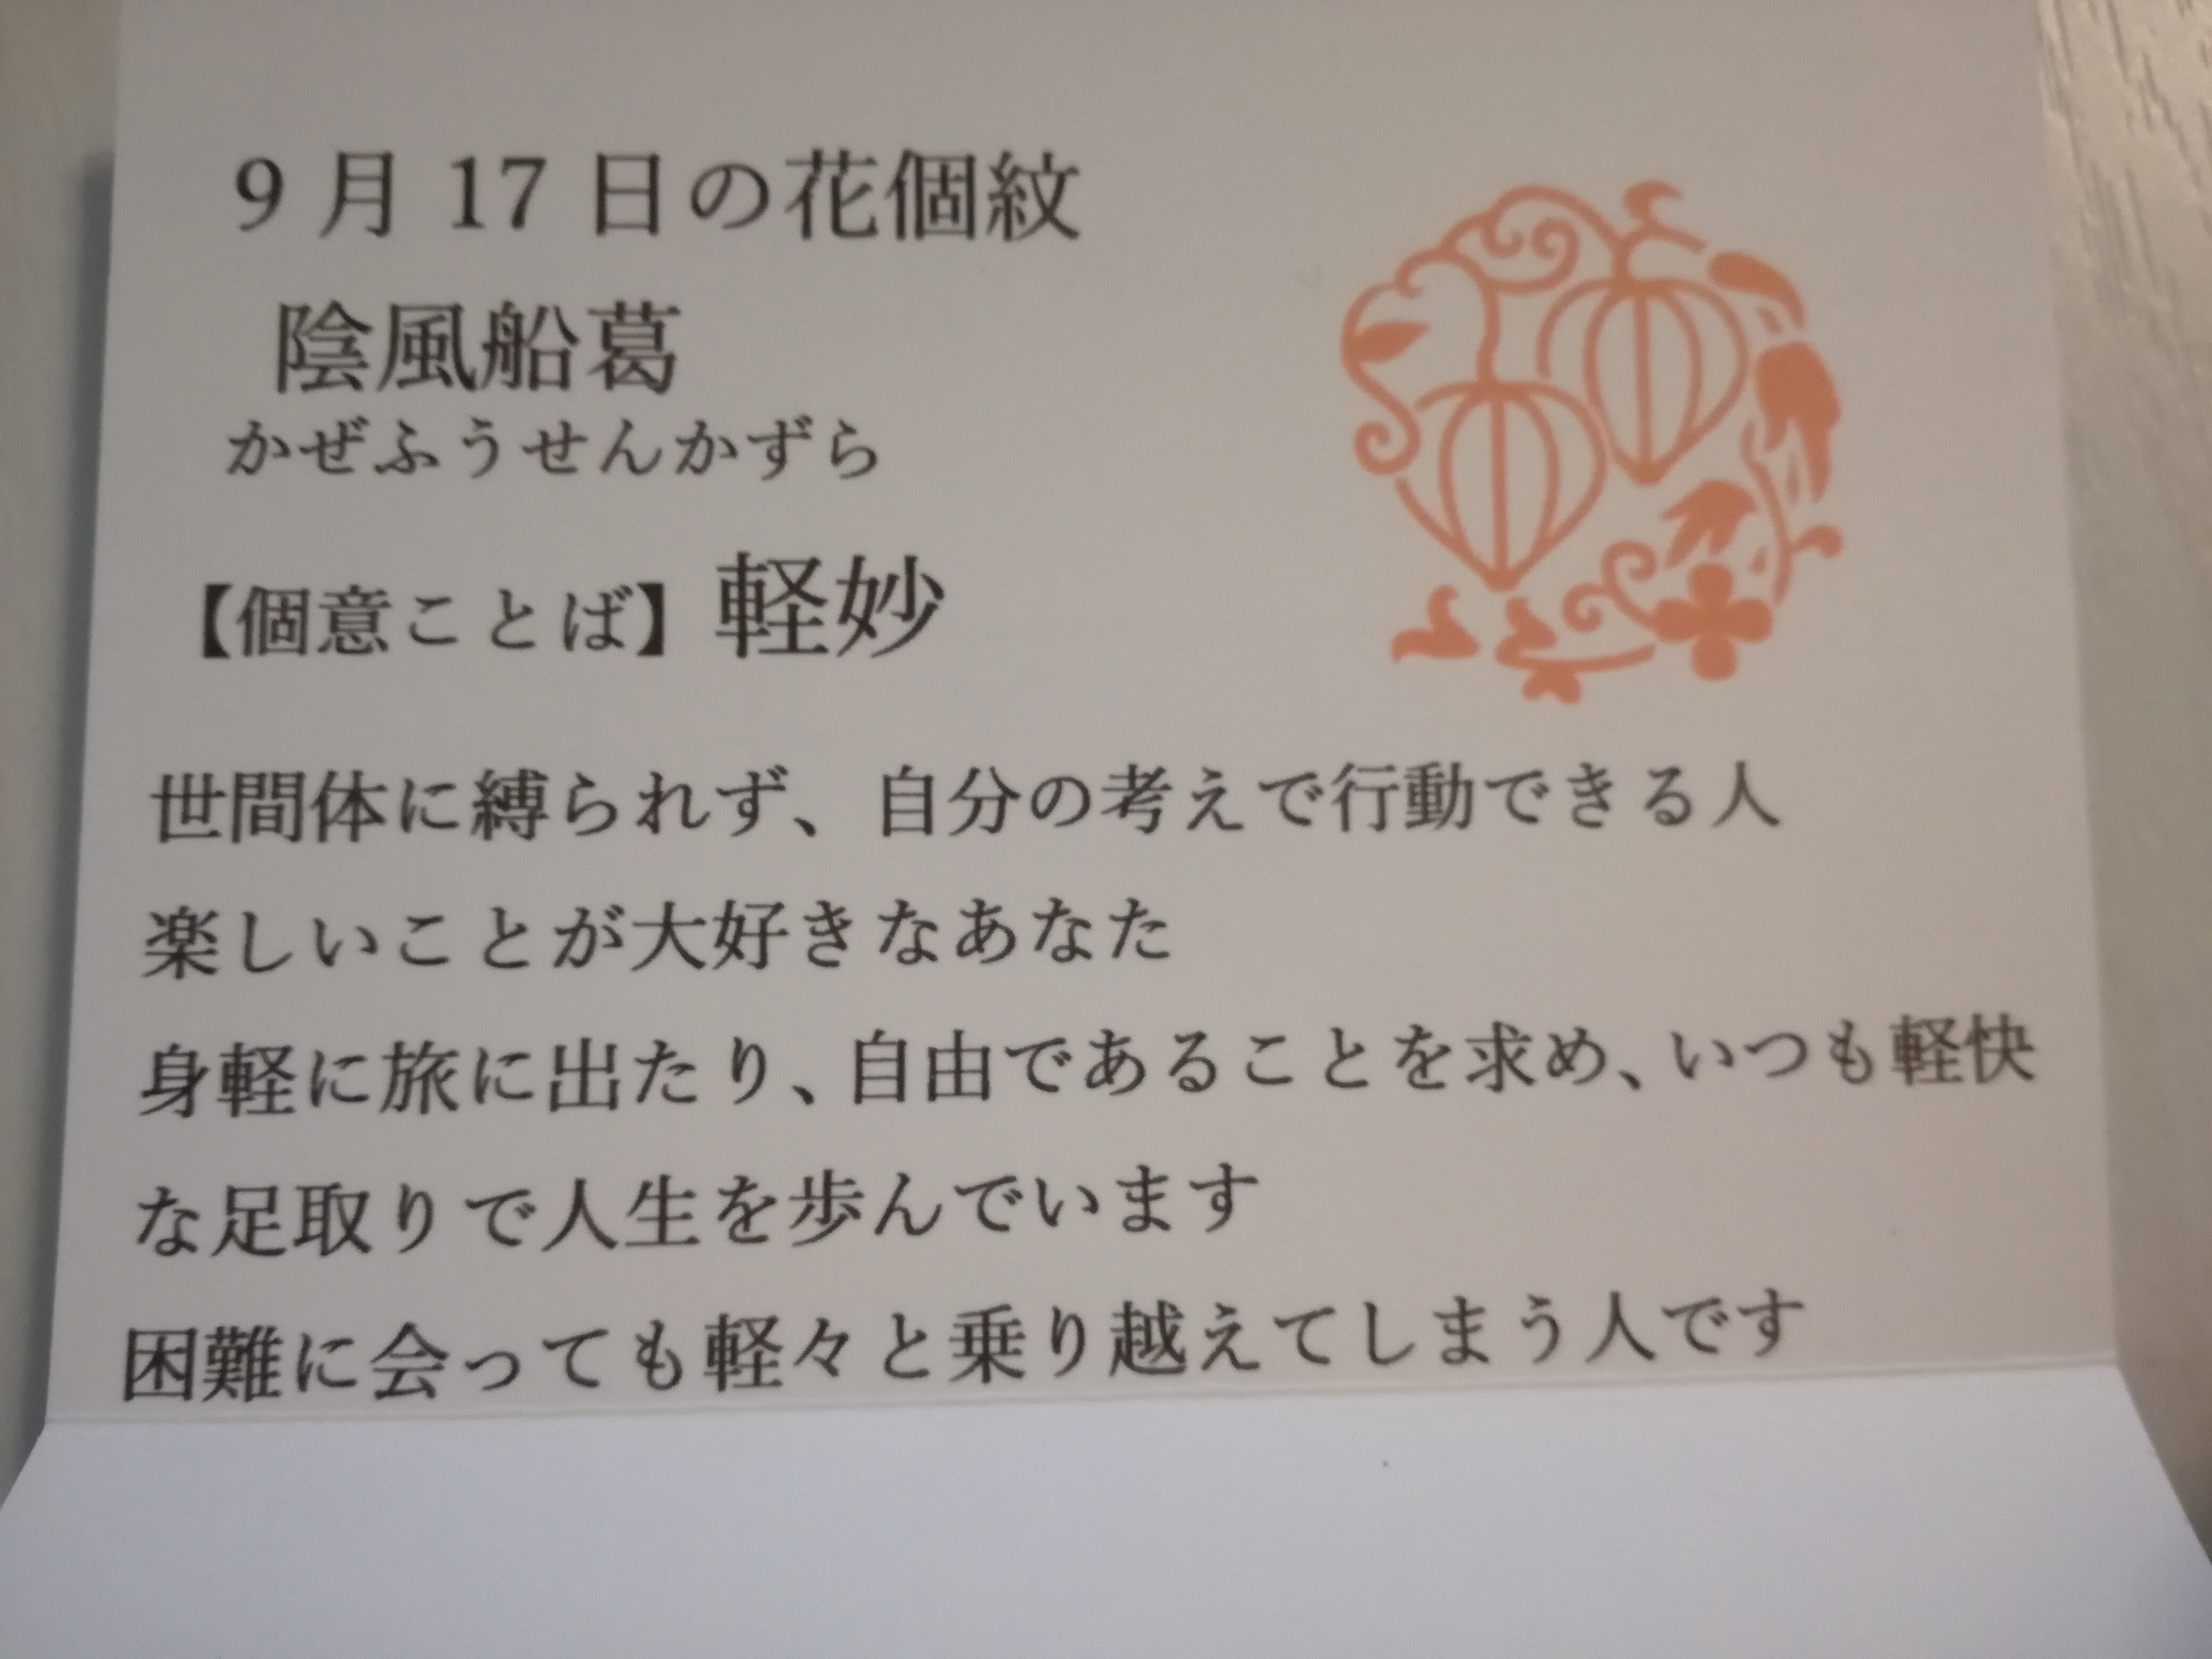 9月17日の花個紋
陰風船葛
かぜふうせんかずら
【個意ことば】軽妙
世間体に縛られず、自分の考えで行動できる人
楽しいことが大好きなあなた
身軽に旅に出たり、自由であることを求め、いつも軽快
な足取りで人生を歩んでいます
困難に会っても軽々と乗り越えてしまう人です